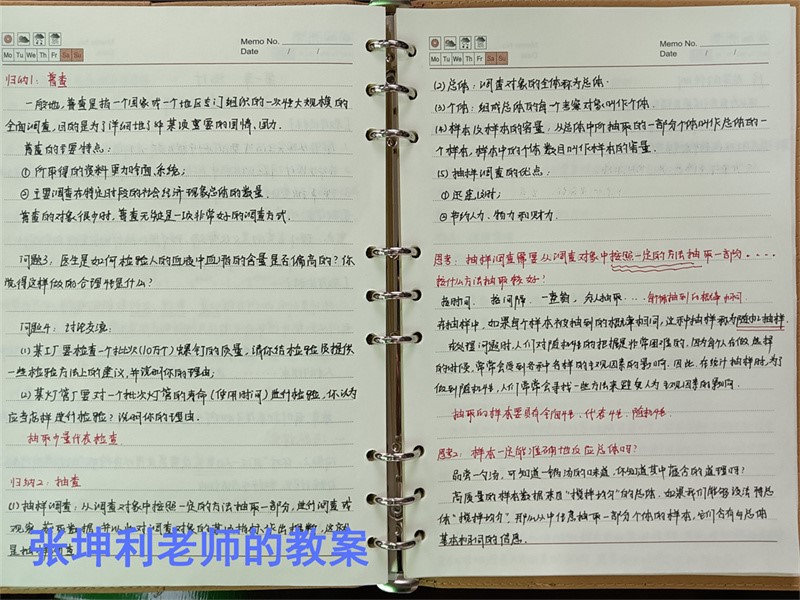 Memo No.
Date / /
Mo Tu We Th Fr Sa Su
归纳1：普查
一般地，普查是指一个国家或一个地区专门组织的一次性大规模的
全面调查，目的是为了详细地了解某项重要的国情、国力.
普查的主要特点：
① 所取得的资料更为全面、系统；
② 主要调查在特定时段的社会经济现象总体的数量.
普查的对象很少时，普查无疑是一项非常好的调查方式.
问题3：医生是如何检验人的血液中血脂的含量是否偏高的？你
觉得这样做的合理性是什么？
问题4：讨论交流：
(1) 某工厂要检查一个批次(10万个)螺钉的质量，请你给检验员提供
一些检验方法上的建议，并说明你的理由；
(2) 某灯管厂要对一个批次灯管的寿命(使用时间)进行检验，你认为
应当怎样进行检验？说明你的理由.
抽取少量代表检查
归纳2：抽查
(1) 抽样调查：从调查对象中按照一定的方法抽取一部分，进行调查或
观测，获取数据，并以此对调查对象的某项指标作出推断，这就
是抽样调查
张坤利老师的教案
Memo No.
Date / /
Mo Tu We Th Fr Sa Su
(2) 总体：调查对象的全体称为总体.
(3) 个体：组成总体的每一个考察对象叫作个体.
(4) 样本及样本的容量，从总体中所抽取的一部分个体叫作总体的一
个样本，样本中的个体数目叫作样本的容量.
(5) 抽样调查的优点：
① 迅速、及时；
② 节约人力、物力和财力.
思考：抽样调查需要从调查对象中按照一定的方法抽取一部分....
按什么方法抽取较好？
按时间、按间隔、一壶韵，为人抽取...每个被抽到的概率相同
在抽样中，如果每个样本被抽到的概率相同，这种抽样称为随机抽样.
在处理问题时，人们对随机性的把握是非常困难的，因为每个人在做选择
的时候，常常会受到各种各样的主观因素的影响. 因此，在统计抽样时，为了
做到随机性，人们常常会寻找一些方法来避免人为主观因素的影响.
抽取的样本要具有全面性、代表性、随机性.
思考2：样本一定能准确地反应总体吗？
品尝一勺汤，可知道一锅汤的味道，你知道其中蕴含的道理吗？
高质量的样本数据来自“搅拌均匀”的总体. 如果我们能够设法将总
体“搅拌均匀”，那么从中任意抽取一部分个体的样本，它们含有与总体
基本相同的信息.